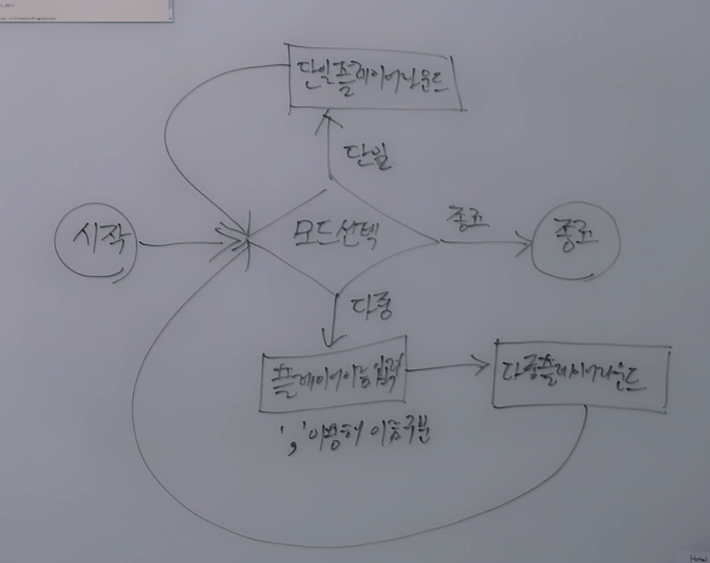 단일플레이어라운드
단일
시작
모드선택
종료
종료
다중
플레이어이름입력
다중플레이어라운드
','이용해 이름구분